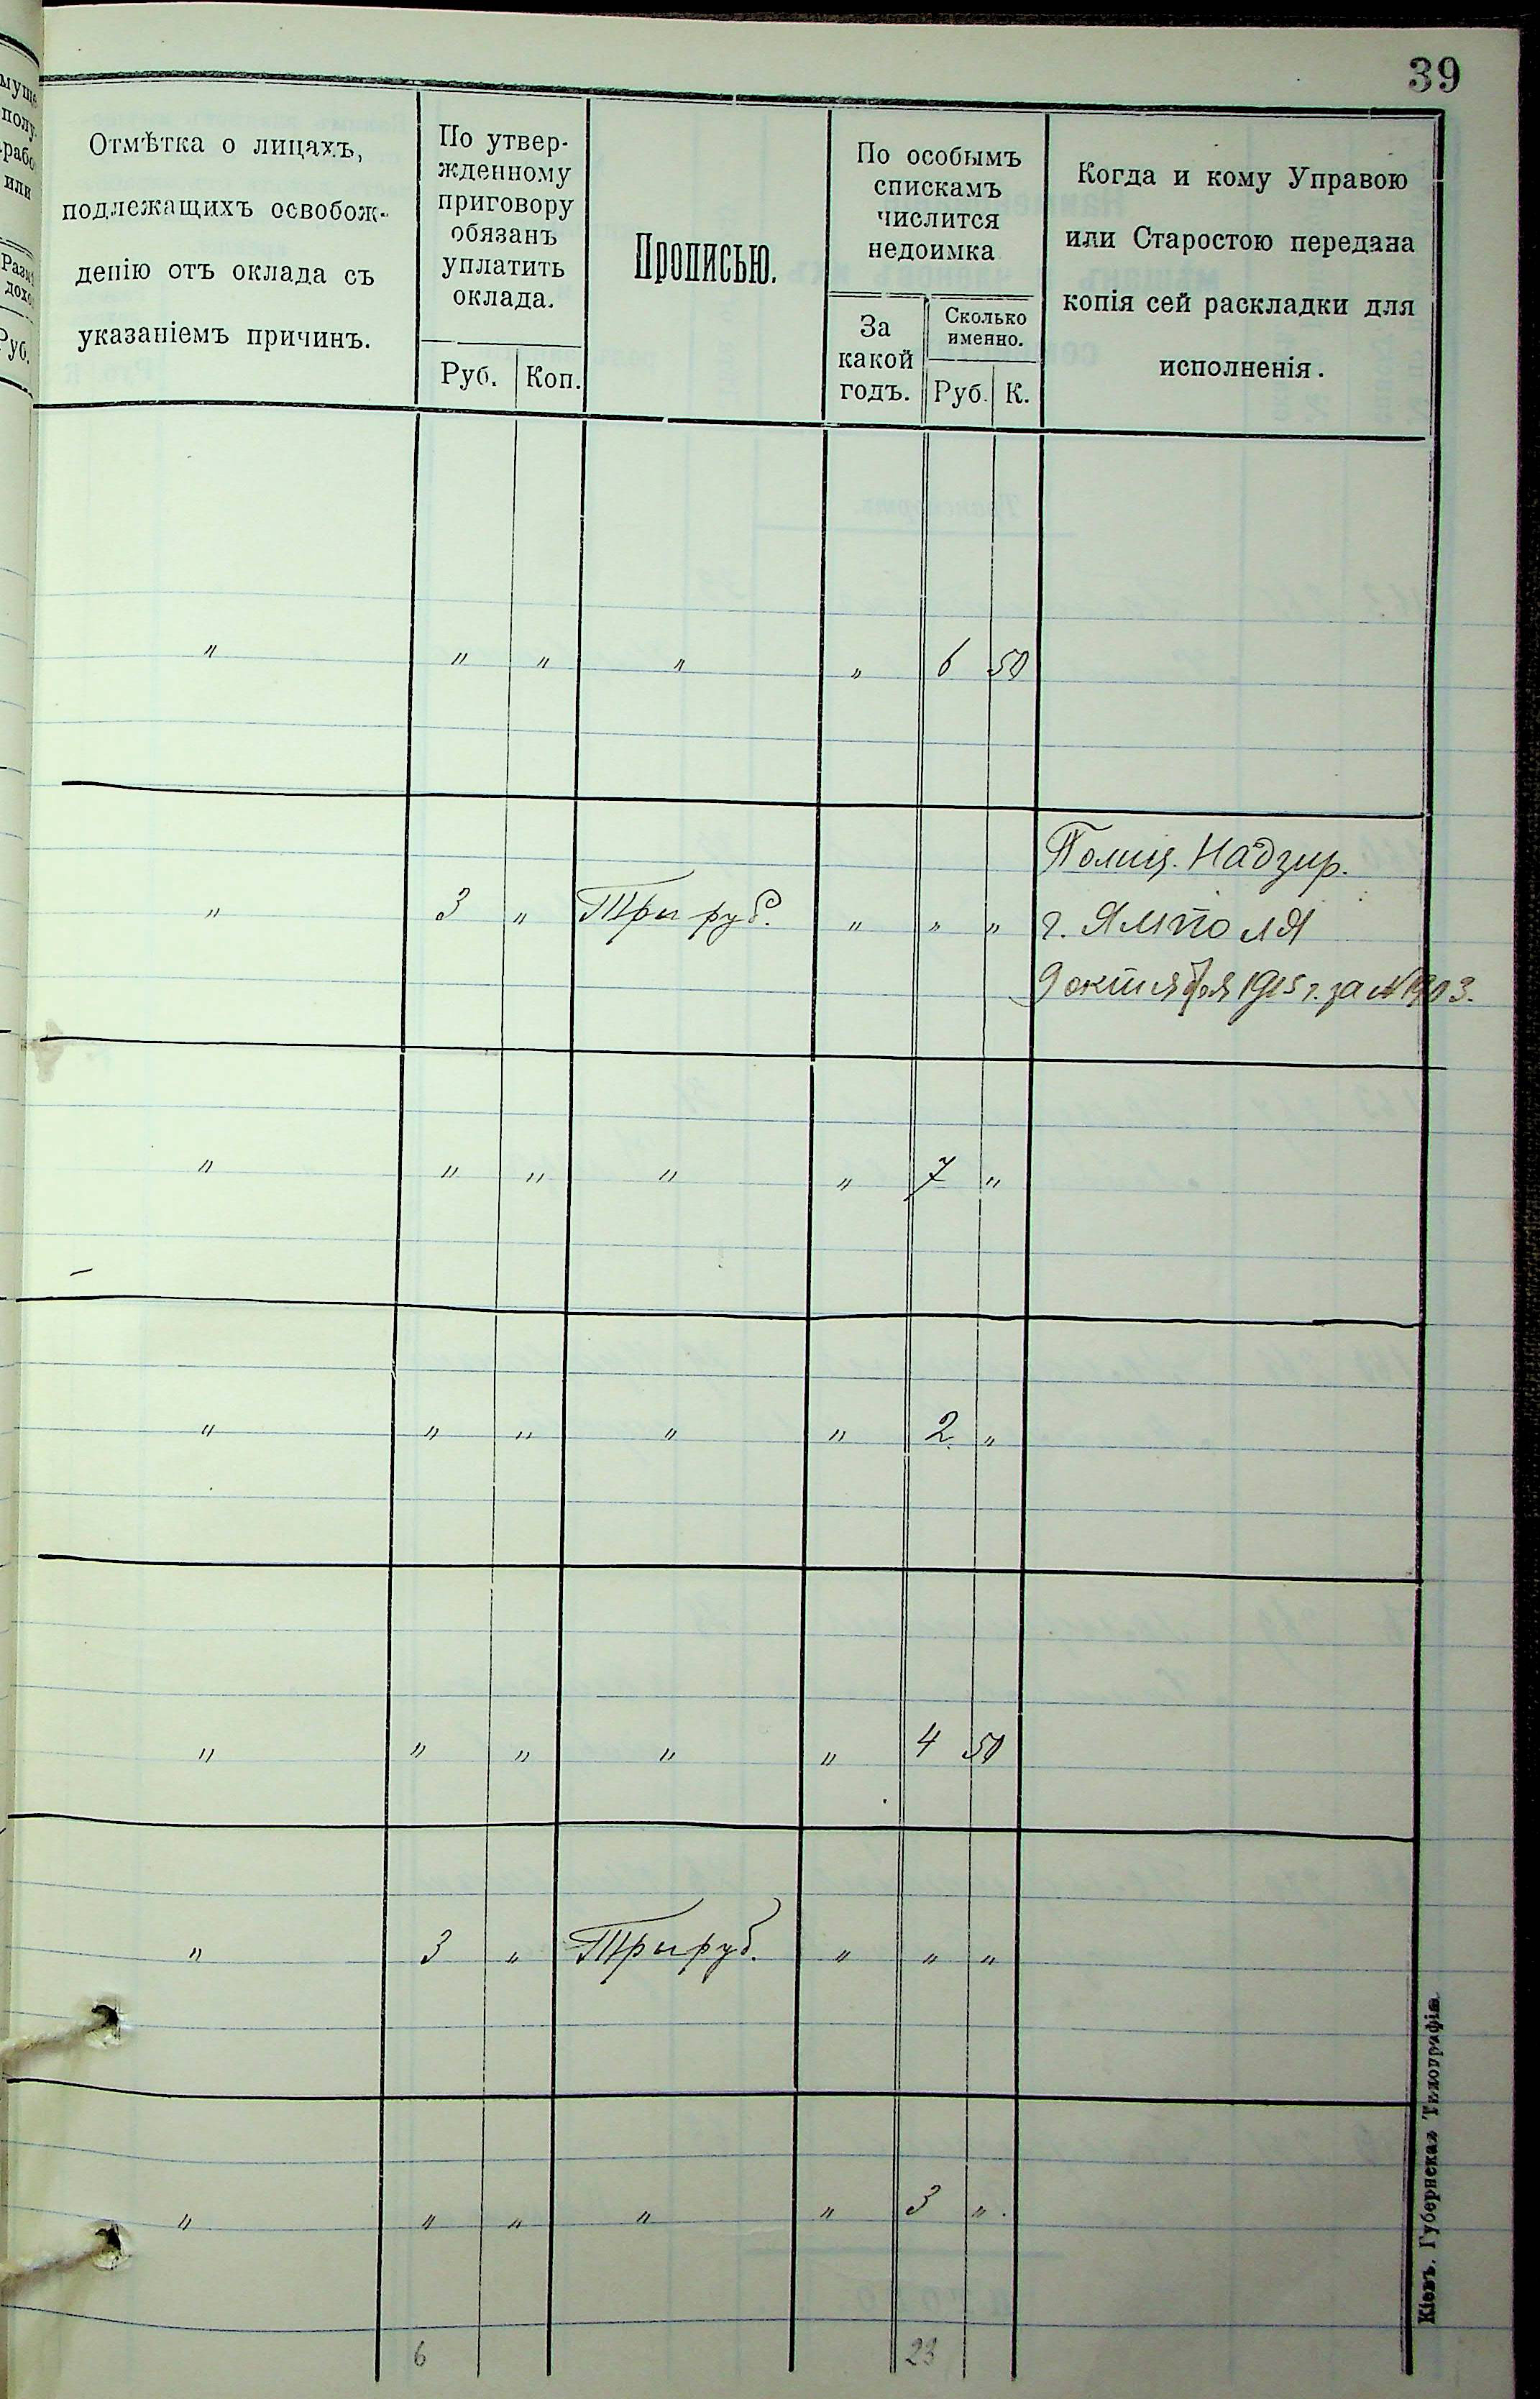 39
Отмѣтка о лицахъ,
подлежащихъ освобож-
денію отъ оклада съ
указаніемъ причинъ.
По утвер-
жденному
приговору
обязанъ
уплатить
оклада.
Руб. Коп.
Прописью.
По особымъ
спискамъ
числится
недоимка
За
какой
годъ.
Сколько
именно.
Руб. К.
Когда и кому Управою
или Старостою передана
копія сей раскладки для
исполненія.
" " " " " 6 50
Полиц. Надзир.
" 3 " Три руб. " " " г. Ямполя
9 октября 1915 г. за №1903.
" " " " " 7 "
" " " " " 2 "
" " " " " 4 50
" 3 " Три руб. " " "
" " " " " 3 "
6 23
Кіевъ. Губернская Типографія.